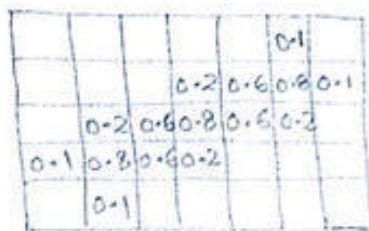 0.1
0.2 0.6 0.8 0.1
0.2 0.6 0.8 0.6 0.2
0.1 0.8 0.6 0.2
0.1